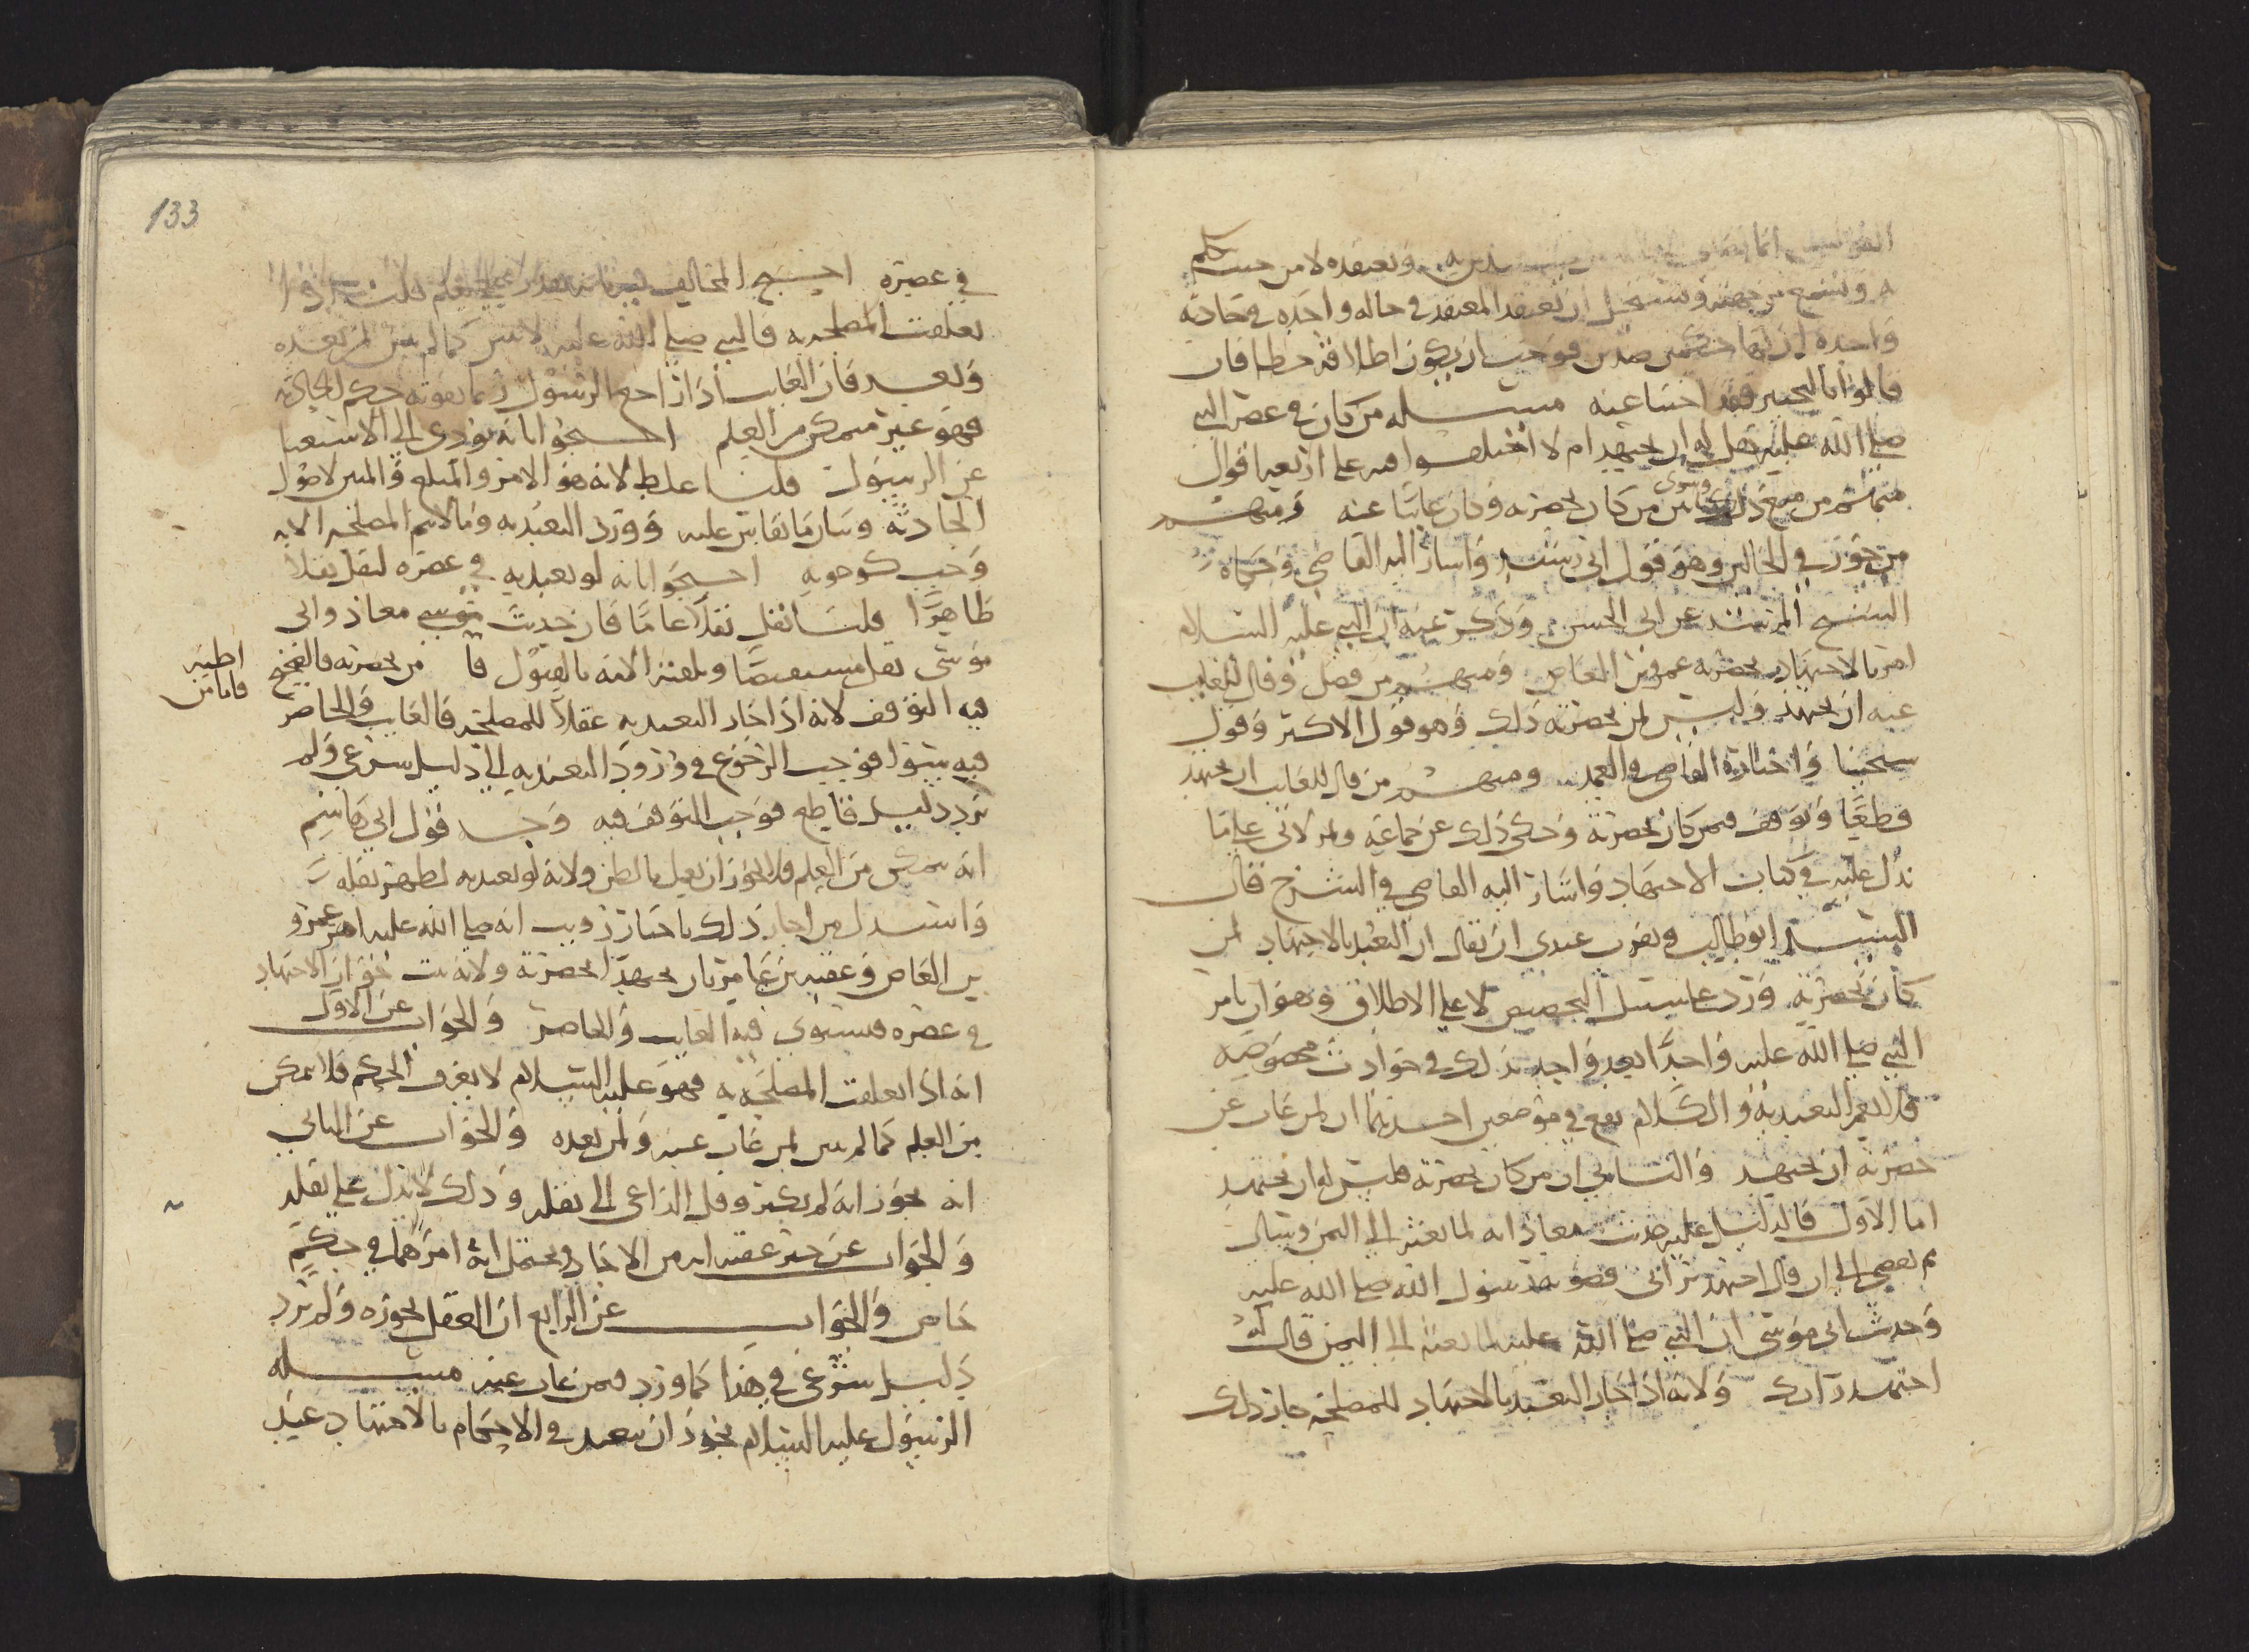 وتعتقده لا من حيث حكم
ان يعتقد المعتقد في حاله واحده في حادثه
واحده ان لها حكمين ضدين فوجب ان يكون اطلاقه خطا فان
قالوا بالتخيير فقد اجبنا عنه مسئله من كان في عصر النبي
صلى الله عليه هل له ان يجتهد ام لا اختلفوا فيه على اربعه اقوال
فمنهم من منع ذلك وسوى بين من كان بحضرته وكان غائبا عنه ومنهم
من جوز في الحالين وهو قول ابي رشيد واشار اليه القاضي وحكاه
الشيخ المرشد عن ابي الحسن وذكر عنه ان النبي عليه السلام
امر بالاجتهاد بحضرته عمرو بن العاص ومنهم من فصل وقال للغايب
عنه ان يجتهد وليس لمن بحضرته ذلك وهو قول الاكثر وقول
شيخينا واختاره القاضي في العمد ومنهم من قال للغايب ان يجتهد
قطعيا وتوقف فيمن كان بحضرته وحكى ذلك عن جماعه ولابي علي ما
يدل عليه في كتاب الاجتهاد واشار اليه القاضي في الشرح فقال
السيد ابو طالب ويقرب عندي ان يقال ان التعبد بالاجتهاد لمن
كان بحضرته ورد على سبيل التخصيص لا على الاطلاق وهو ان يامر
النبي صلى الله عليه واحدا بعد واحد بذلك في حوادث مخصوصه
فلا يعم التعبد به والكلام يقع في موضعين احدهما ان لمن غاب عن
حضرته ان يجتهد والثاني ان من كان بحضرته فليس له ان يجتهد
اما الاول فالدليل عليه حديث معاذ انه لما بعثه الى اليمن وسال
بم تقضي الى ان قال اجتهد رايي فصوبه رسول الله صلى الله عليه
وحديث ابي موسى ان النبي صلى الله عليه لما بعثه الى اليمن قال له
اجتهد رايك ولانه اذا جاز التعبد بالاجتهاد للمصلحه جاز ذلك
133
في عصره احتج المخالف
تعلقت المصلحه به فالنبي صلى الله عليه لا يبين كما لم يبين لمن بعده
وبعد فان الغايب اذا اراد مراجعه الرسول ربما يفوته حكم الحادثه
فهو غير متمكن من العلم احتجوا بانه يودي الى الاستغنا
عن الرسول قلنا غلط لانه هو الامر والمبلغ والمبين لاصول
الحادثه وبيان ما يقاس عليه وورد التعبد به وما لا يتم المصلحه الا به
وجب كوجوبه احتجوا بانه لو تعبد به في عصره لنقل نقلا
ظاهرا قلنا نقل نقلا عاما فان حديث معاذ وابي
موسى نقل مستفيضا وتلقته الامه بالقبول فاما من بحضرته فالصحيح
اظنه
فاما من
فيه التوقف لانه اذا جاز التعبد به عقلا للمصلحه فالغايب والحاضر
فيه سوا فوجب الرجوع في ورود التعبد به الى دليل شرعي ولم
يرد دليل قاطع فوجب التوقف فيه وجه قول ابي هاشم
انه متمكن من العلم فلا يجوز ان يعمل بالظن ولانه لو تعبد به لظهر نقله
واستدل من اجاز ذلك باخبار رويت انه صلى الله عليه امر عمرو
بن العاص وعقبه بن عامر بان يجتهدا بحضرته ولانه ثبت جواز الاجتهاد
في عصره فيستوي فيه الغايب والحاضر والجواب عن الاول
انه اذا تعلقت المصلحه به فهو عليه السلام لا يعرف الحكم فلا يمكن
من العلم كما لم يبين لمن غاب عنه ولمن بعده والجواب عن الثاني
انه يجوز انه لم يكثر وقل الداعي الى نقله وذلك لا يدل على نقله
والجواب عن خبر عقبه انه من الاحاد ويحتمل انه امرهما في حكم
خاص والجواب عن الرابع ان العقل يجوزه ولم يرد
دليل شرعي في هذا كما ورد فيمن غاب عنه مسئله
الرسول عليه السلام يجوز ان يتعبد في الاحكام بالاجتهاد عند